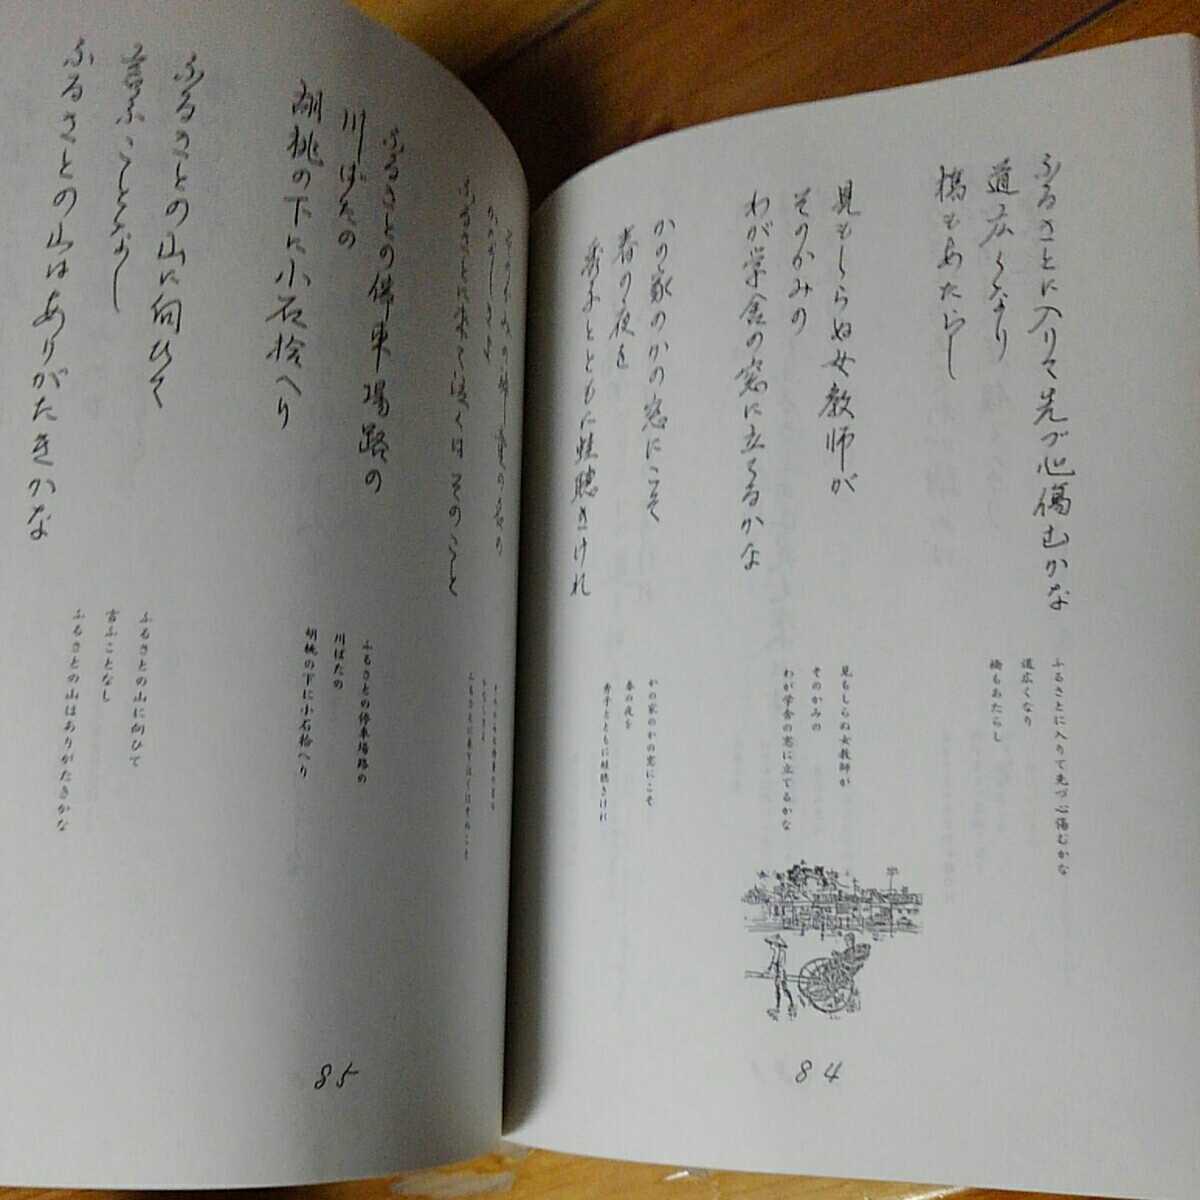 ふるさとに入りて先づ心傷むかな
道広くなり
橋もあたらし
見もしらぬ女教師が
そのかみの
わが学舎の窓に立てるかな
かの家のかの窓にこそ
春の夜を
秀子とともに蛙聴きけれ
ふるさとに入りて先づ心傷むかな
道広くなり
橋もあたらし
見もしらぬ女教師が
そのかみの
わが学舎の窓に立てるかな
かの家のかの窓にこそ
春の夜を
秀子とともに蛙聴きけれ
84
そのかみの神童の名の
かなしさよ
ふるさとに来て泣くはそのこと
ふるさとの停車場路の
川ばたの
胡桃の下に小石拾へり
ふるさとの山に向ひて
言ふことなし
ふるさとの山はありがたきかな
そのかみの神童の名の
かなしさよ
ふるさとに来て泣くはそのこと
ふるさとの停車場路の
川ばたの
胡桃の下に小石拾へり
ふるさとの山に向ひて
言ふことなし
ふるさとの山はありがたきかな
85